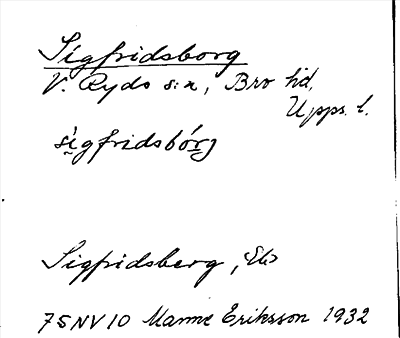 Sigfridsborg
V. Ryds s:n, Bro hd,
Upps. l.
sigfridsbórj
Sigfridsberg, Eb
75NV10 Manne Eriksson 1932